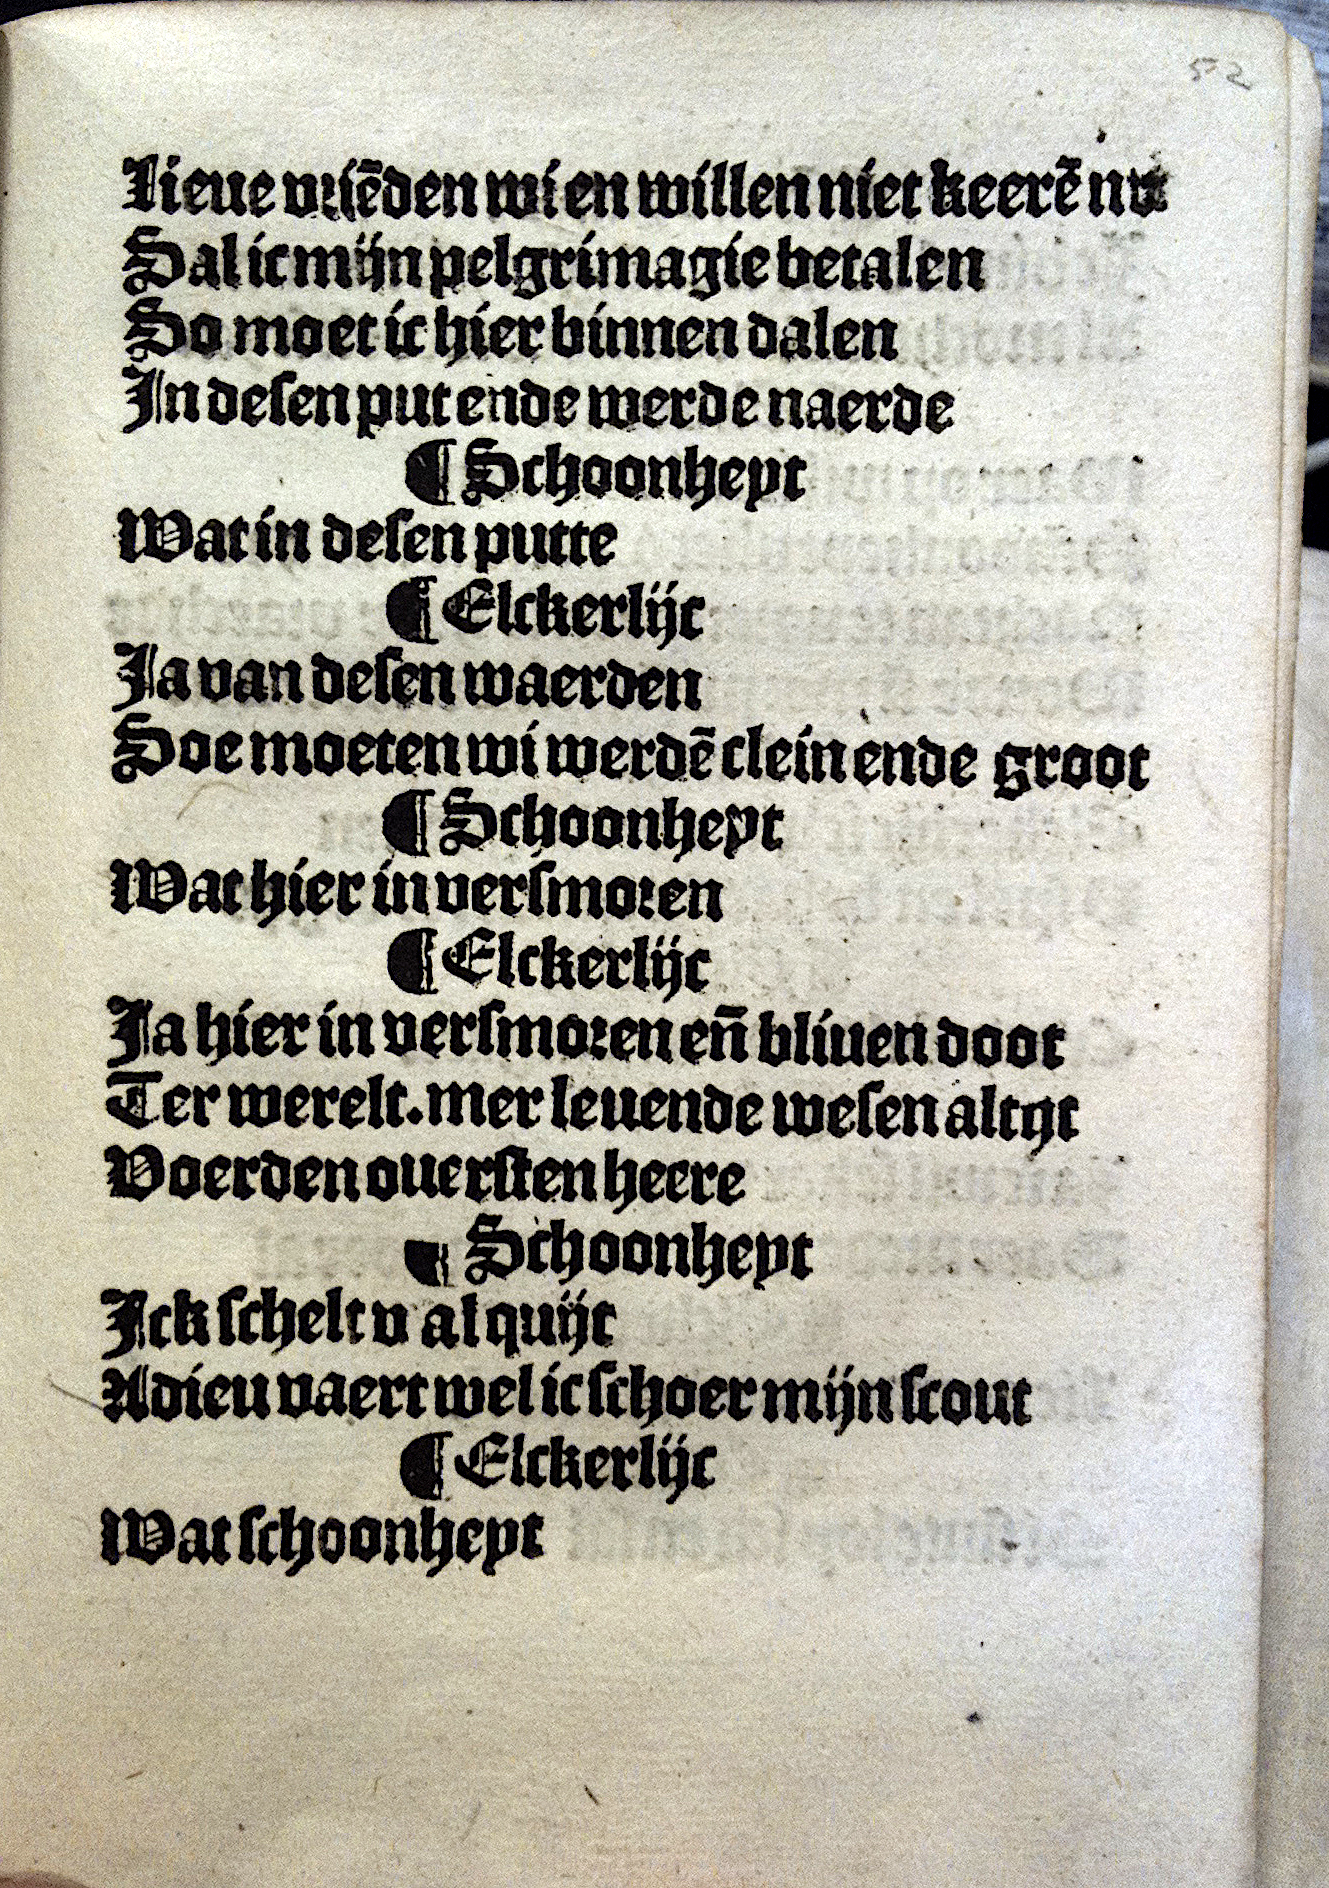 52
Lieue vriēden wi en willen niet keerē nv
Sal ic mijn pelgrimagie betalen
So moet ic hier binnen dalen
In desen put ende werde naerde
¶ Schoonheyt
Wat in desen putte
¶ Elckerlijc
Ja van desen waerden
Soe moeten wi werdē clein ende groot
¶ Schoonheyt
Wat hier in versmoren
¶ Elckerlijc
Ja hier in versmoren en̄ bliuen doot
Ter werelt. mer leuende wesen altijt
Voer den ouersten heere
¶ Schoonheyt
Ick schelt v al quijt
Adieu vaert wel ic schoer mijn scout
¶ Elckerlijc
Wat schoonheyt